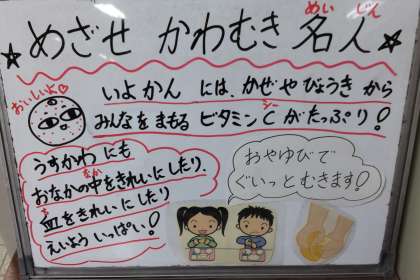 ★めざせ かわむき 名人★
めい じん
おいしいよ♡
いよかん には、かぜや びょうき から
みんなを まもる ビタミンC がたっぷり!
シー
うすかわ にも
おなかの中をきれいにしたり、
なか
血をきれいにしたり
ち
えいよう いっぱい!
おやゆびで
ぐいっと むきます!